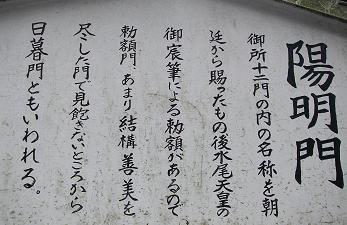 陽明門
御所十二門の内の名称を朝
廷から賜ったもの後水尾天皇の
御宸筆による勅額があるので
勅額門、あまり結構善美を
尽した門で見飽きないところから
日暮門ともいわれる。